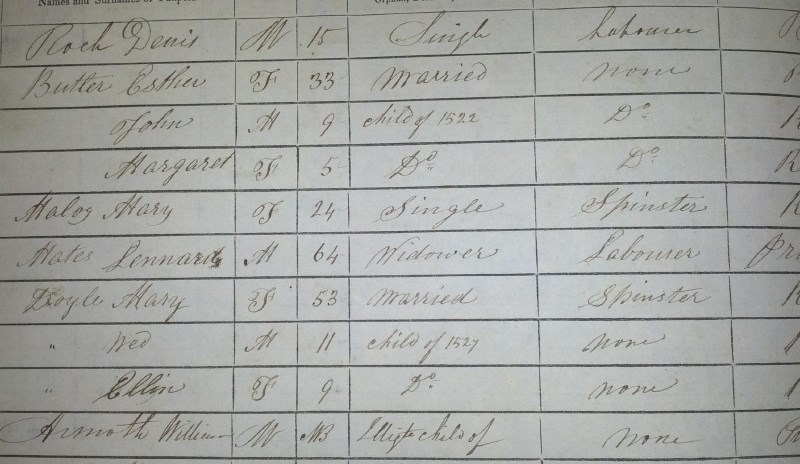 Names and Surnames of Paupers
Roch Denis M 15 Single Labourer
Butler Esther F 33 Married none
John M 9 child of 1522 Do
Margaret F 5 Do Do R
Maloy Mary F 24 Single Spinster
Mates Lennard M 64 Widower Labourer
Doyle Mary F 53 Married Spinster
" Wed M 11 child of 1527 none
" Ellin F 9 Do none
William M child of none